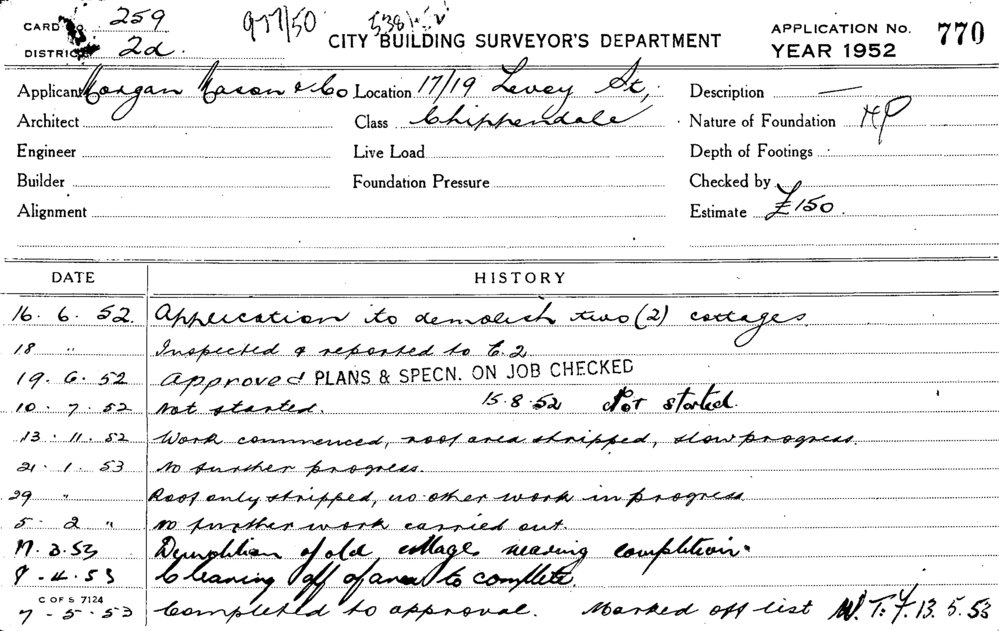 CARD No. 259 977/50 538 CITY BUILDING SURVEYOR'S DEPARTMENT APPLICATION No. 770
DISTRICT 2d. YEAR 1952
Applicant Morgan Mason & Co Location 17/19 Levey St, Description —
Architect Class Chippendale Nature of Foundation HP
Engineer Live Load Depth of Footings
Builder Foundation Pressure Checked by
Alignment Estimate £150
DATE HISTORY
16. 6. 52. Application to demolish two (2) cottages
18 " Inspected & reported to C.2
19. 6. 52 Approved PLANS & SPECN. ON JOB CHECKED
10. 7. 52 Not started. 15.8.52 Not started.
13. 11. 52 Work commenced, roof area stripped, slow progress.
21. 1. 53 No further progress.
29 " Roof only stripped, no other work in progress
5. 2 " No further work carried out.
17. 3. 53 Demolition of old cottages nearing completion.
9. 4. 53 Cleaning off of area to complete.
C OF S 7124
7. 5. 53 Completed to approval. Marked off list W.T.F. 13.5.53